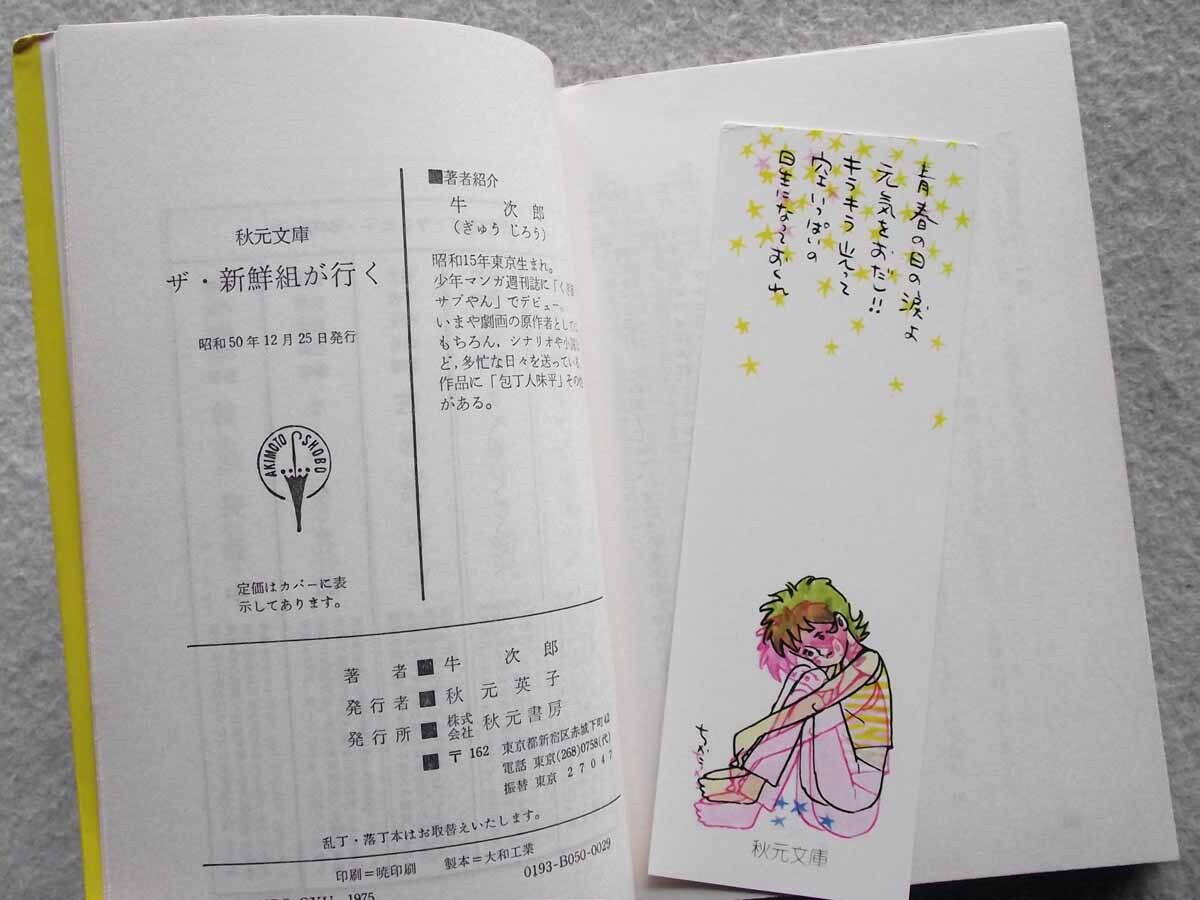 ■著者紹介
牛 次郎
(ぎゅう じろう)
昭和15年東京生まれ。
少年マンガ週刊誌に「く
サブやん」でデビュー。
いまや劇画の原作者として
もちろん，シナリオや小
ど，多忙な日々を送っている
作品に「包丁人味平」その
がある。
秋元文庫
ザ・新鮮組が行く
昭和50年12月25日発行
AKIMOTO SHOBO
定価はカバーに表
示してあります。
著者■牛 次郎
発行者■秋元英子
発行所■株式会社 秋元書房
■〒162 東京都新宿区赤城下町42
電話 東京(268)0758(代)
振替 東京 27047
乱丁・落丁本はお取替えいたします。
印刷＝暁印刷 製本＝大和工業 0193-B050-0029
1975
青春の日の涙よ
元気をおだし!!
キラキラ光って
空いっぱいの
星になっておくれ
秋元文庫